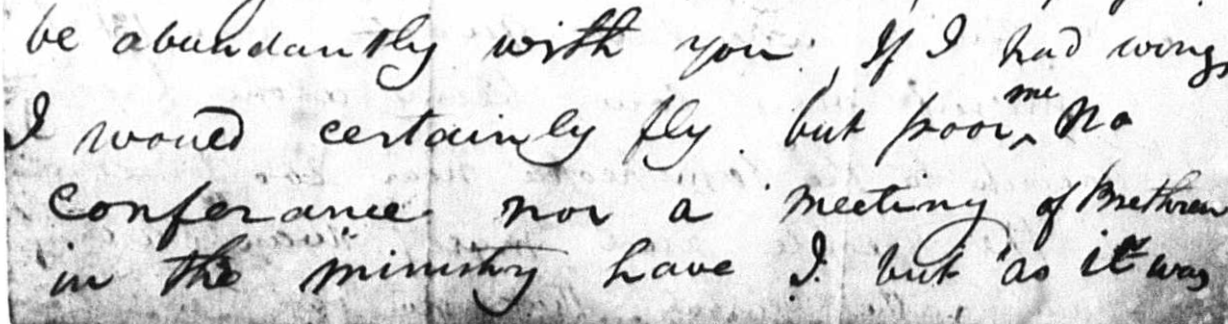 be abundantly with you. If I had wings
I would certainly fly. but poor ^me No
conferance nor a meeting of Brethren
in the ministry have I but as it was